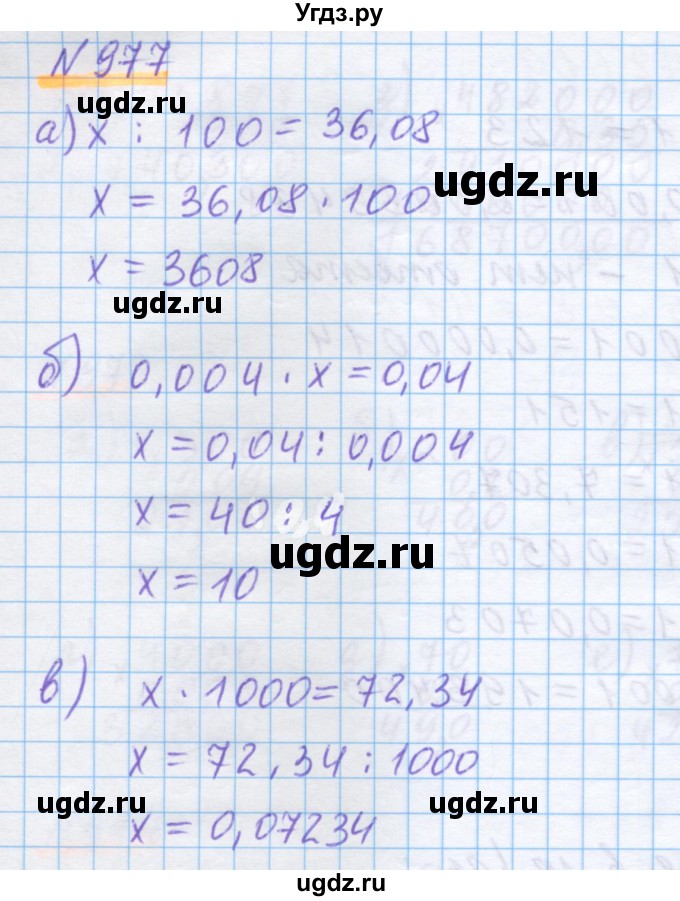 Угдз.ру
N 977
ugdz.ru
а) x : 100 = 36,08
ugdz.ru
x = 36,08 · 100
x = 3608
ugdz.ru
б) 0,004 · x = 0,04
x = 0,04 : 0,004
x = 40 : 4
ugdz.ru
x = 10
в) x · 1000 = 72,34
x = 72,34 : 1000
ugdz.ru
ugdz.ru
x = 0,07234
ugdz.ru